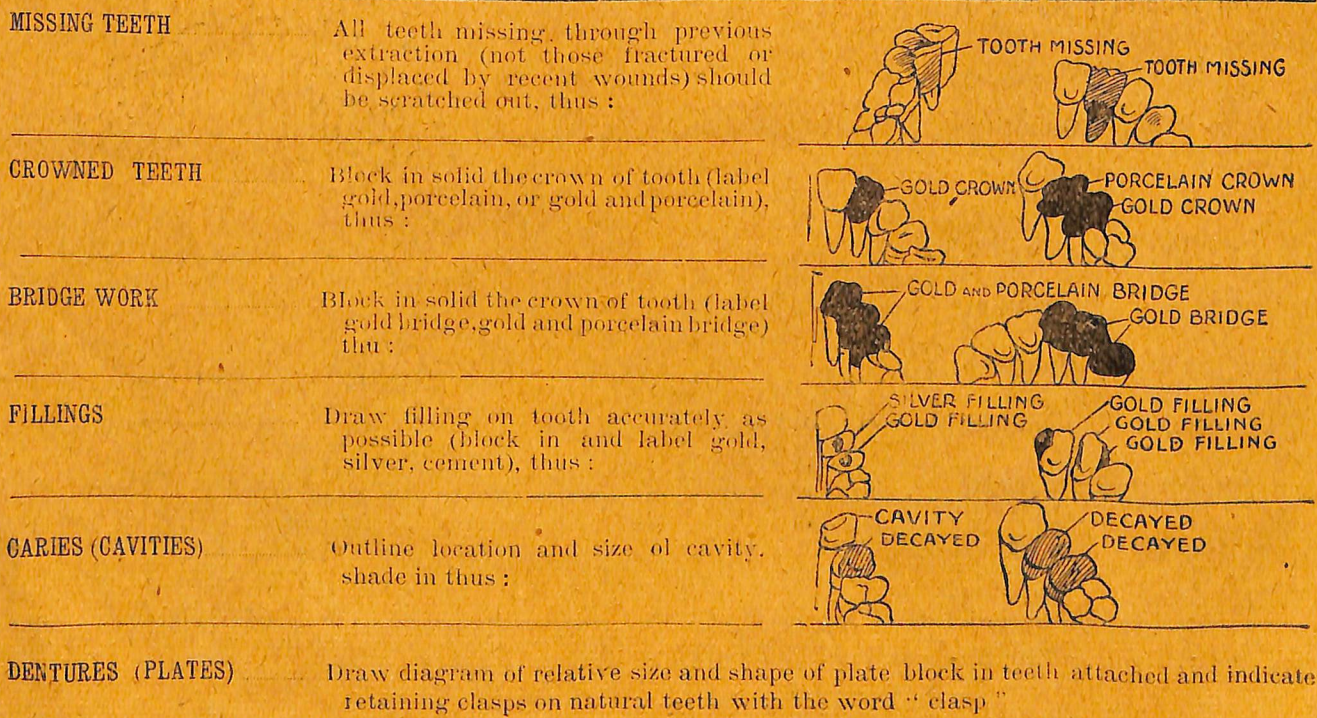 MISSING TEETH
All teeth missing, through previous
extraction (not those fractured or
displaced by recent wounds) should
be scratched out, thus :
TOOTH MISSING
TOOTH MISSING
CROWNED TEETH
Block in solid the crown of tooth (label
gold, porcelain, or gold and porcelain),
thus :
GOLD CROWN
PORCELAIN CROWN
GOLD CROWN
BRIDGE WORK
Block in solid the crown of tooth (label
gold bridge, gold and porcelain bridge)
thu :
GOLD AND PORCELAIN BRIDGE
GOLD BRIDGE
FILLINGS
Draw filling on tooth accurately as
possible (block in and label gold,
silver, cement), thus :
SILVER FILLING
GOLD FILLING
GOLD FILLING
GOLD FILLING
GOLD FILLING
CARIES (CAVITIES)
Outline location and size of cavity,
shade in thus :
CAVITY
DECAYED
DECAYED
DECAYED
DENTURES (PLATES)
Draw diagram of relative size and shape of plate block in teeth attached and indicate
retaining clasps on natural teeth with the word " clasp "